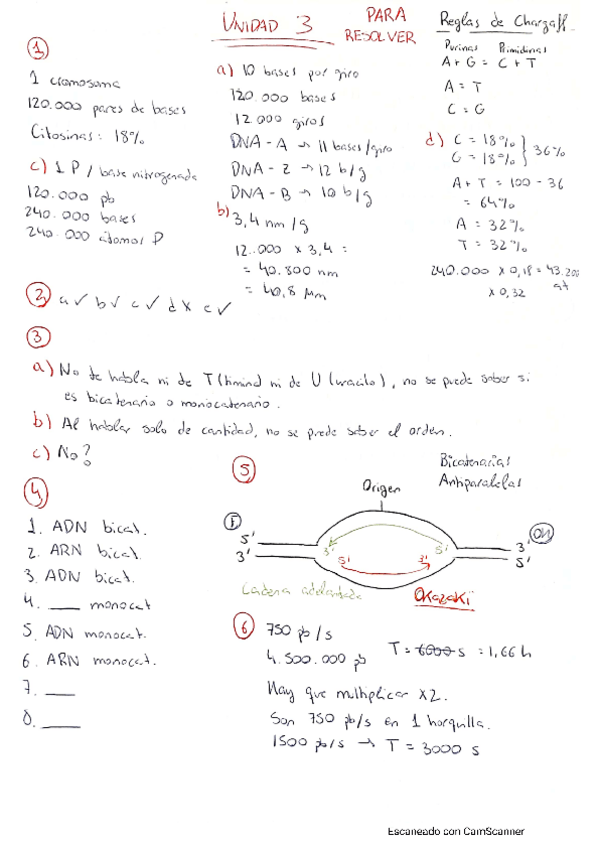 UNIDAD 3
PARA
RESOLVER
Reglas de Chargaff.
Purinas Pirimidinas
A + G = C + T
A = T
C = G
1
1 cromosoma
120.000 pares de bases
Citosinas: 18%
c) 1 P / base nitrogenada
120.000 pb
240.000 bases
240.000 átomos P
a) 10 bases por giro
120.000 bases
12.000 giros
DNA - A → 11 bases/giro
DNA - Z → 12 b/g
DNA - B → 10 b/g
b) 3,4 nm/g
12.000 x 3,4 =
= 40.800 nm
= 40,8 μm
d) C = 18%
G = 18% } 36%
A + T = 100 - 36
= 64%
A = 32%
T = 32%
240.000 x 0,18 = 43.200
x 0,32
2 a ✓ b ✓ c ✓ d x e ✓
3
a) No te habla ni de T (timina) ni de U (uracilo), no se puede saber si
es bicatenario o monocatenario.
b) Al hablar solo de cantidad, no se puede saber el orden.
c) No?
4
1. ADN bicat.
2. ARN bicat.
3. ADN bicat.
4. ___ monocat
5. ADN monocat.
6. ARN monocat.
7. ___
8. ___
5
Bicatenarias
Antiparalelas
Origen
P
5'
3'
3'
5'
5'
3'
OH
3'
5'
Cadena adelantada
Okazaki
6
750 pb/s
4.500.000 pb
T = 6000 s = 1,66 h
Hay que multiplicar x2.
Son 750 pb/s en 1 horquilla.
1500 pb/s → T = 3000 s
Escaneado con CamScanner